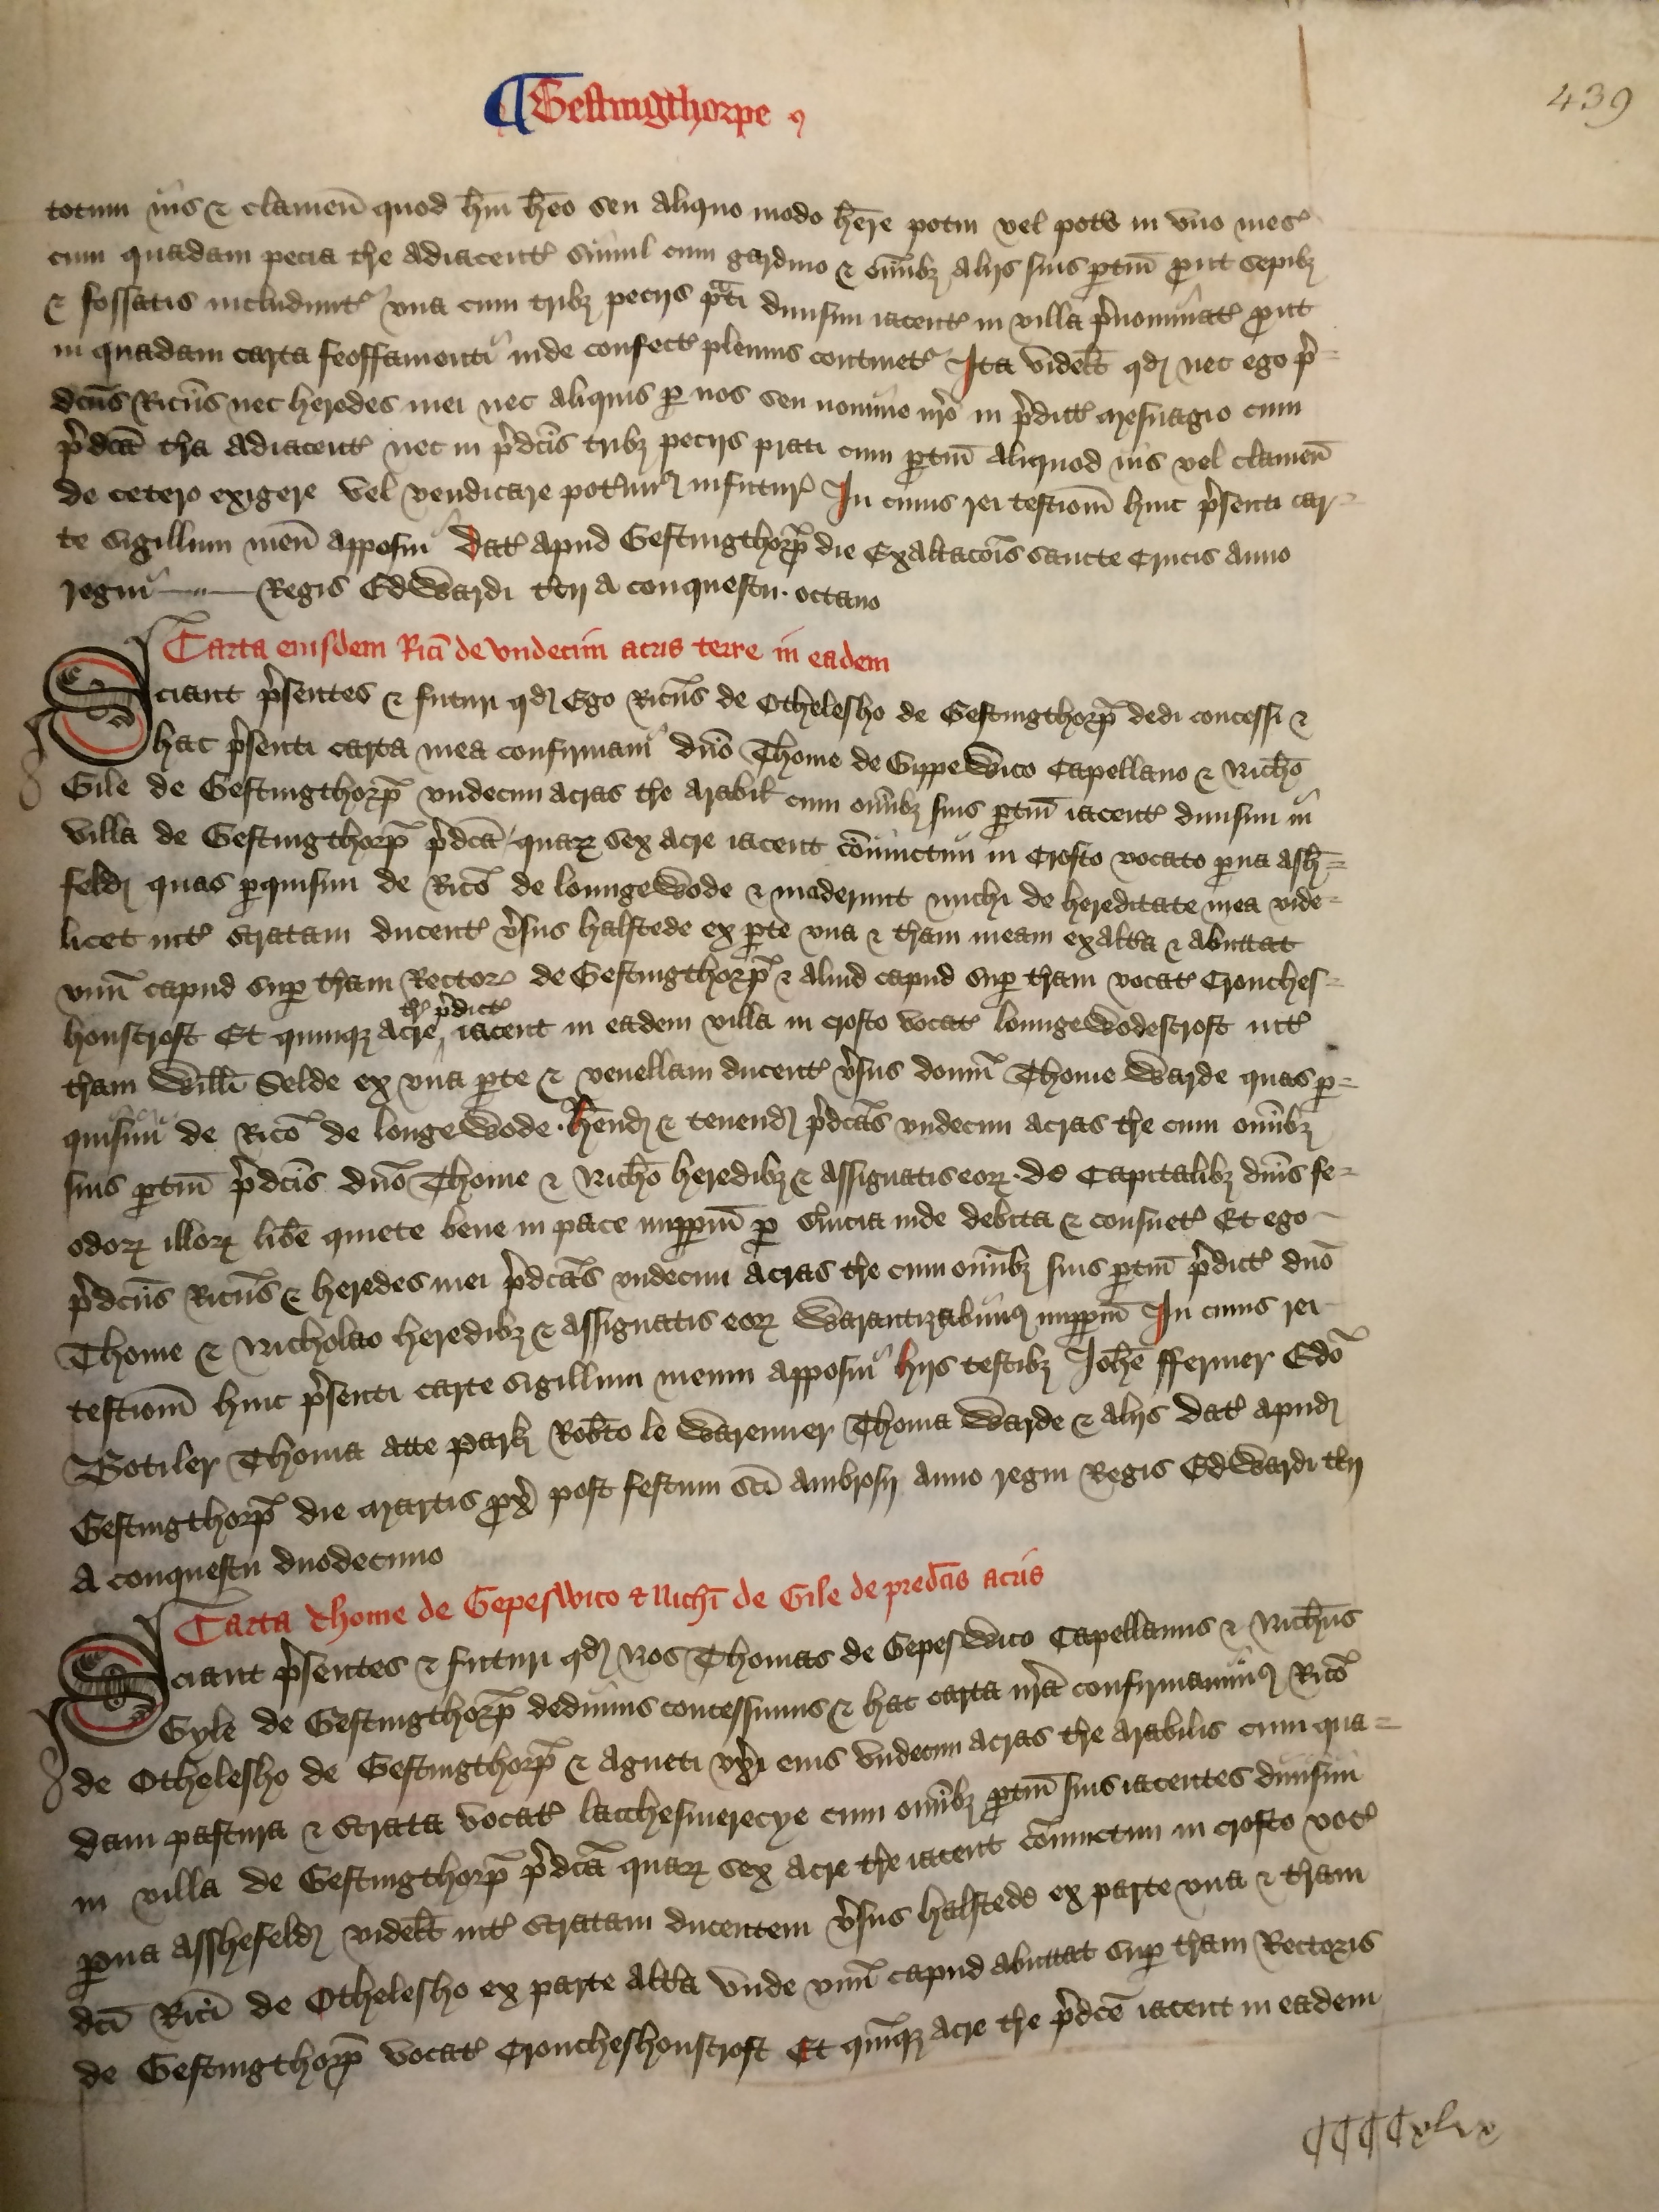 ¶ Gestingthorpe
439
totum ius & clamen̄ quod h̄ui h̄eo seu aliquo modo h̄ere potui vel pot̄o in vno mes̄
cum quadam pecia tr̄e adiacent̄ simul cum gardino & om̄ibȝ alijs suis p̱tin̄ ꝓut sepibȝ
& fossatis includunt̄ vna cum tribȝ pecijs p̄ati diuisim iacent̄ in villa p̄nominat̄ ꝓut
in quadam carta feoffamenti inde confect̄ plenius continet̄ Ita videlt̄ qd̄ nec ego p̄-
dc̄us Ric̄us nec heredes mei nec aliquis ꝑ nos seu nomine nr̄o in p̄dict̄ mesuagio cum
p̄dc̄a tr̄a adiacent̄ nec in p̄dc̄is tribȝ pecijs prati cum p̱tin̄ aliquod ius vel clamen̄
de cetero exigere vel vendicare pot̄im̄ infutur̄ In cuius rei testiom̄ huic p̄senti car-
te sigillum meū apposui Dat̄ apud Gestingthorp̄ die Exaltac̄ois sancte Crucis anno
regni Regis Edwardi t̄cij a conquestu octauo
Carta eiusdem Ric̄i de vndecim acris terre in eadem
Sciant p̄sentes & futuri qd̄ Ego Ric̄us de Othelesho de Gestingthorp̄ dedi concessi &
hac p̄senti carta mea confirmaui dn̄o Thome de Gippewico Capellano & Nich̄o
Gile de Gestingthorp̄ vndecim acras tr̄e arabil̄ cum om̄ibȝ suis p̱tin̄ iacent̄ diuisim in
villa de Gestingthorp̄ p̄dc̄a quaꝝ sex acre iacent cōniunctim in Crofto vocato ꝑua assh̄-
feld̄ quas ꝑquisiui de Ric̄o de loungewode & inciderunt michi de hereditate mea vide-
licet int̄ stratam ducent̄ v̄sus halstede ex ꝑte vna & tr̄am meam ex alt̄a & abuttat
vnū capud sup̱ tr̄am Rector̄ de Gestingthorp̄ & aliud capud sup̱ tr̄am vocat̄ Crouches-
houscroft Et quinqȝ acre tr̄e p̄dict̄ iacent in eadem villa in crofto vocat̄ loungewodescroft int̄
tr̄am Will̄i Selde ex vna ꝑte & venellam ducent̄ v̄sus domū Thome Warde quas ꝑ-
quisiui de Ric̄o de longewode. h̄end̄ & tenend̄ p̄dc̄as vndecim acras tr̄e cum om̄ibȝ
suis p̱tin̄ p̄dc̄is dn̄o Thome & Nich̄o heredibȝ & assignatis eoꝝ. de Capitalibȝ dn̄is fe-
odoꝝ illoꝝ lib̄e quiete bene in pace imꝑpm̄ ꝑ s̄uicia inde debita & consuet̄ Et ego
p̄dc̄us Ric̄us & heredes mei p̄dc̄as vndecim acras tr̄e cum om̄ibȝ suis p̱tin̄ p̄dict̄ dn̄o
Thome & Nicholao heredibȝ & assignatis eoꝝ Warantizabimꝰ imꝑpm̄ In cuius rei
testiom̄ huic p̄senti carte sigillum meum apposui hijs testibȝ Joh̄e ffermer Edō
Botiler Thoma atte Park̄ Rob̄to le Warenner Thoma Warde & alijs Dat̄ apud̄
Gestingthorp̄ die martis ꝓx̄ post festum sc̄i Ambrosij anno regni Regis Edwardi t̄cij
a conquestu duodecimo
Carta Thome de Gepeswico & Nich̄i de Gile de predc̄is acris
Sciant p̄sentes & futuri qd̄ Nos Thomas de Gepeswico Capellanus & Nich̄us
Gyle de Gestingthorp̄ dedimus concessimus & hac carta nr̄a confirmauimꝰ Ric̄o
de Othelesho de Gestingthorp̄ & Agneti vx̄i eius vndecim acras tr̄e arabilis cum qua-
dam pastura & strata vocat̄ lacchesmerecye cum om̄ibȝ p̱tin̄ suis iacentes diuisim
in villa de Gestingthorp̄ p̄dc̄a quaꝝ sex acre tr̄e iacent cōniunctim in crofto voc̄
ꝑua Asshefeld̄ videlt̄ int̄ stratam ducentem v̄sus halstede ex parte vna & tr̄am
dc̄i Ric̄i de Othelesho ex parte alt̄a Vnde vnū capud abuttat sup̱ tr̄am Rectoris
de Gestingthorp̄ vocat̄ Croucheshouscroft Et quinqȝ acre tr̄e p̄dc̄e iacent in eadem
CCCCxlix